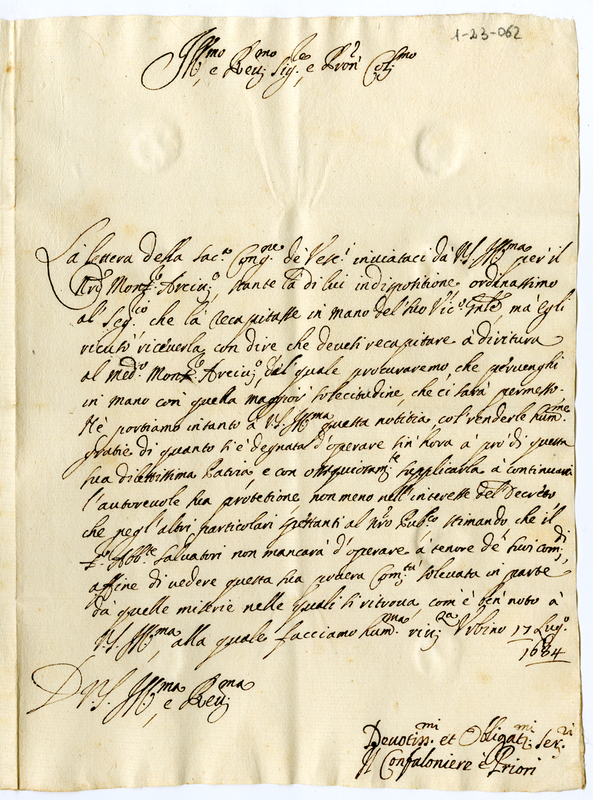 1-23-062
Ill.mo e Rev.mo Sig.re e Pron Col.mo
La lettera della Sac.a Cong.ne de Vesc.i inviataci da V.S. Ill.ma per il
Nro Mons.r Arciv.o, stante la di lui indispositione ordinassimo
al Seg.rio che la recapitasse in mano del suo Vic.o Gnle, mà egli
ricusò riceverla con dire che devesi recapitare à diritura
al med.o Mons.r Arciv.o, dal quale procuraremo, che pervenghi
in mano con quella maggior solecitudine, che ci sarà permesso.
Ne portiamo intanto à V.S. Ill.ma questa notitia col renderle hum.me
gratie di quanto si è degnata d'operare sin hora à prò di questa
sua dilettissima Patria, e con ossequioram.te supplicarla à continuare
l'autorevole sua protetione non meno nell'interesse del Decreto
che negl'altri particolari spettanti al nro Pub.co stimando che il
S.r Abb.te Salvatori non mancarà d'operare à tenore de suoi com.di,
affine di vedere questa sua povera Com.tà solevata in parte
da quelle miserie nelle quali si ritrova com'è ben noto à
V.S. Ill.ma, alla quale facciamo hum.ma riv.za Urbino 17 Lug.o
1684
D V.S. Ill.ma e Rev.ma
Devotiss.mi et Obligat.mi Ser.ri
Il Confaloniere e Priori